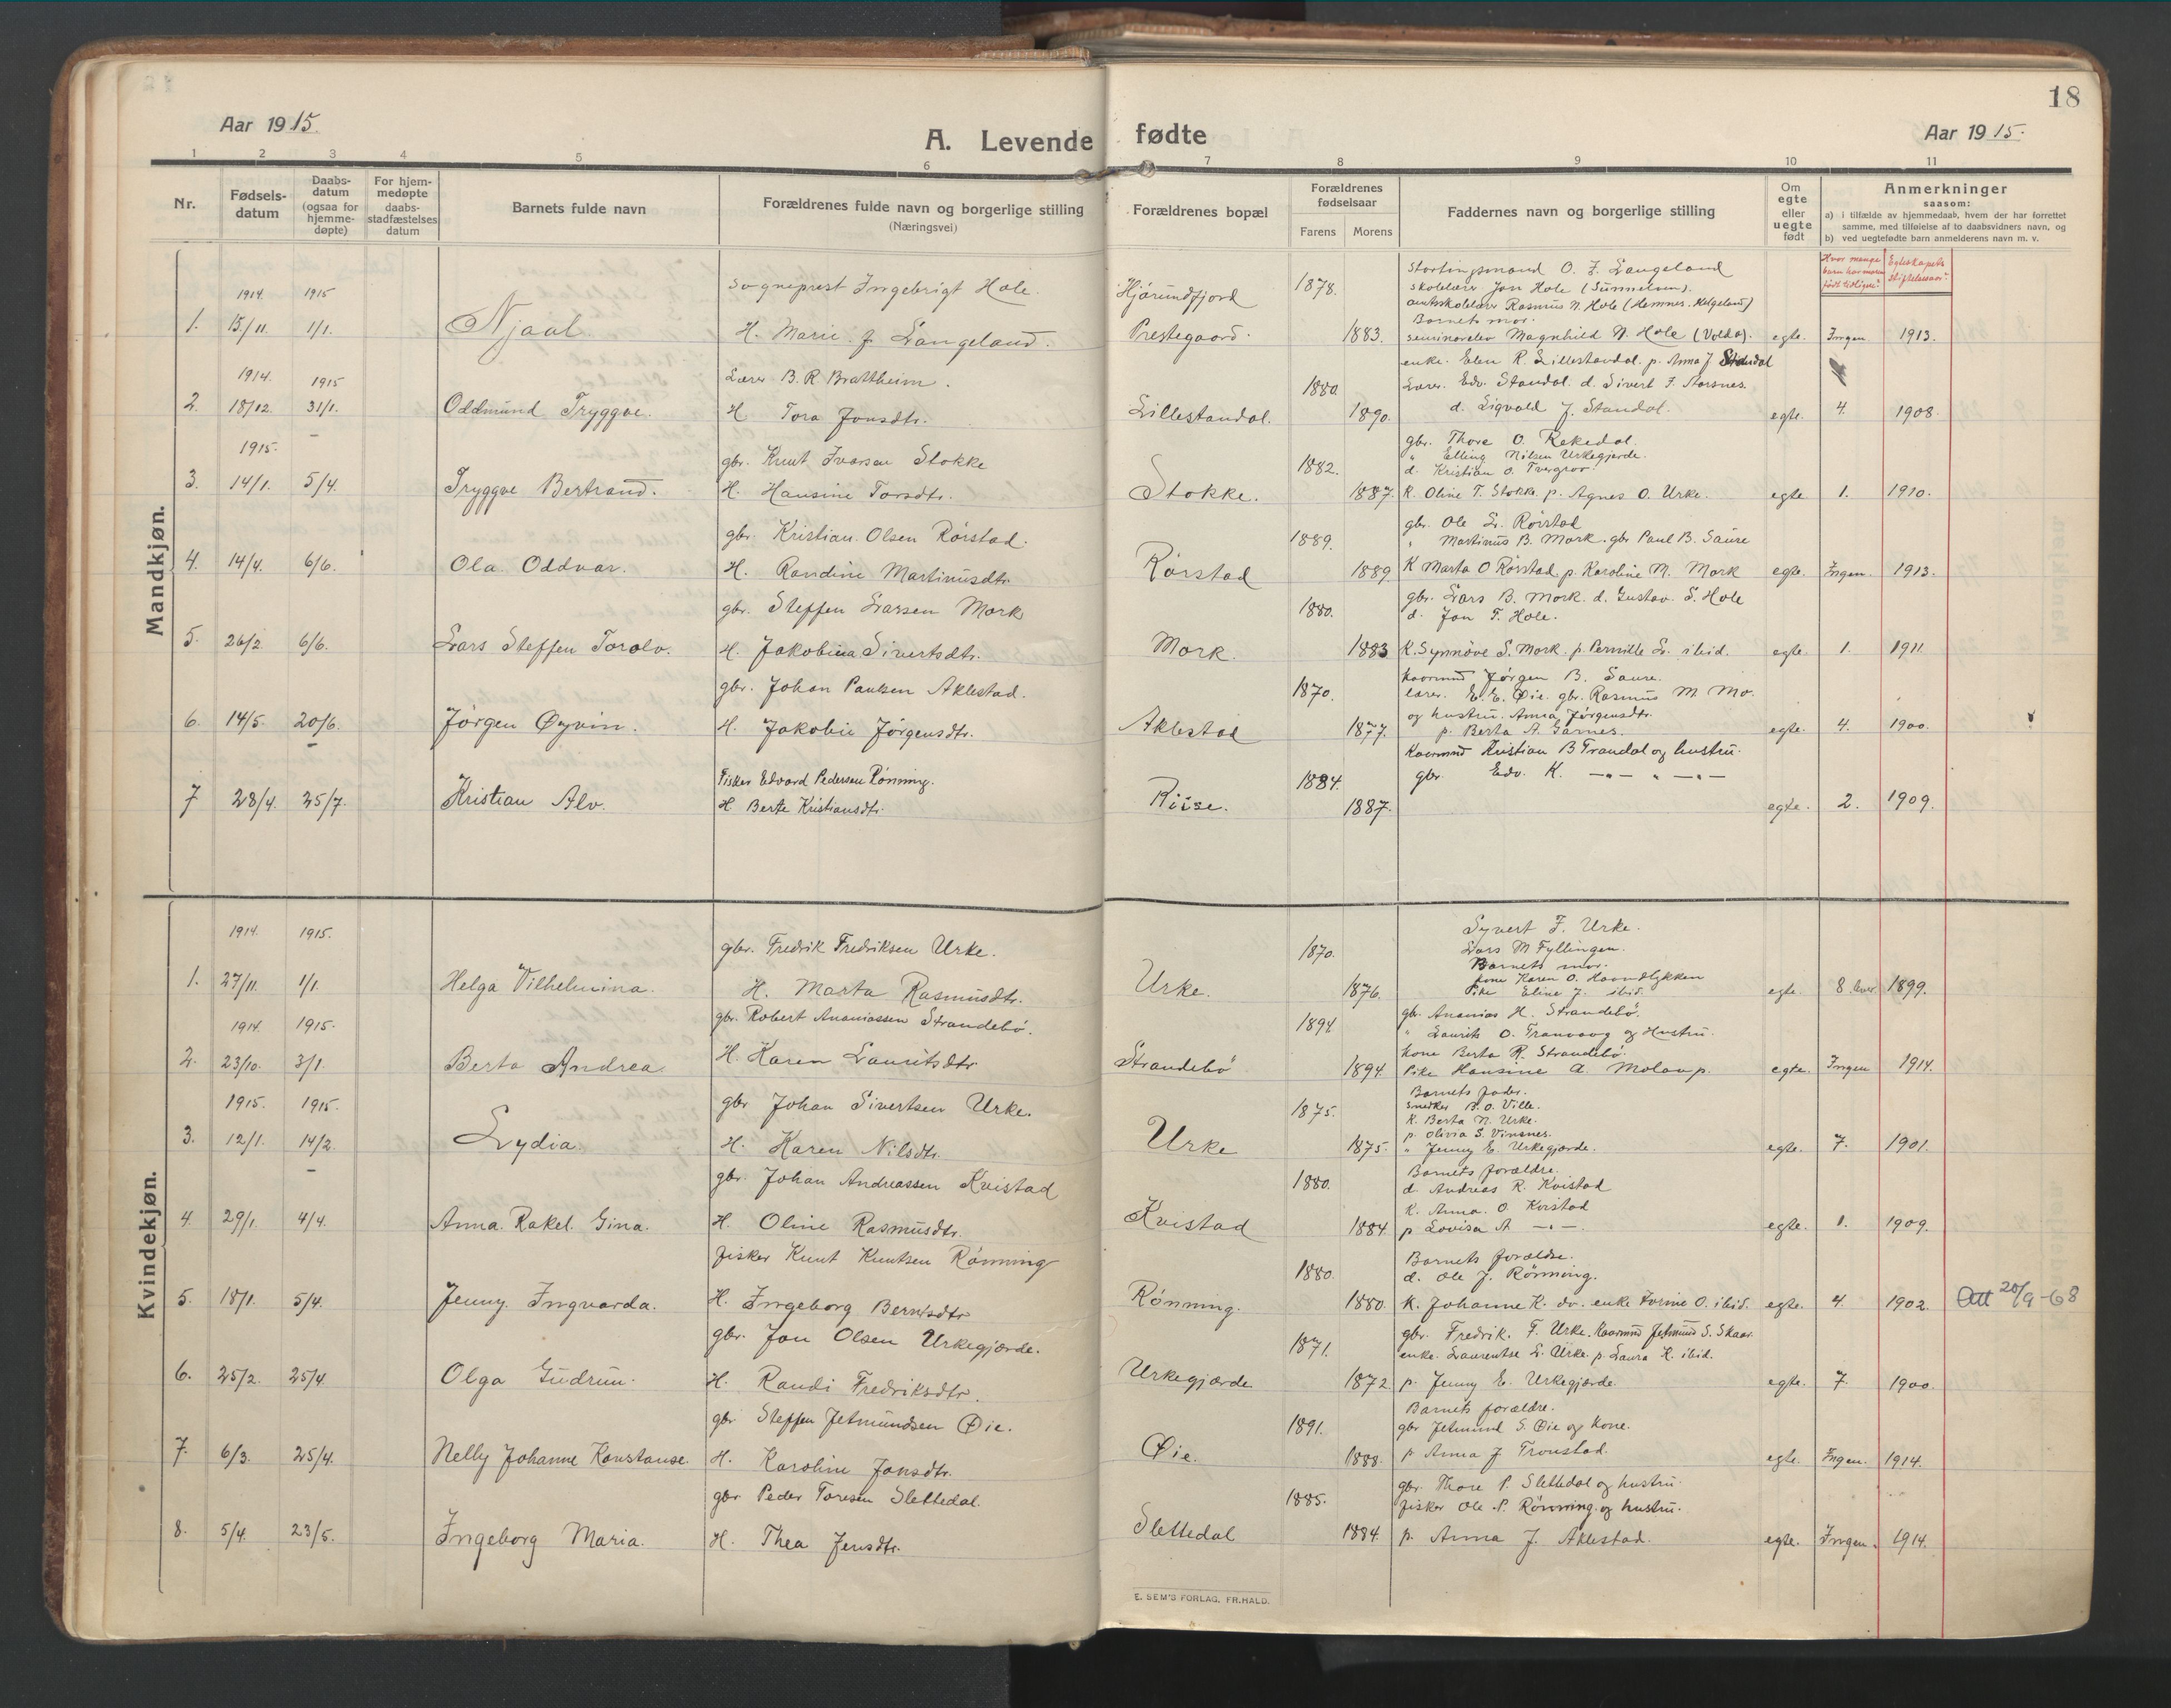 18
Aar 1915.
A. Levende fødte
Aar 1915.
1 2 3 4 5 6 7 8 9 10 11
Nr.
Fødsels-datum
Daabs-datum (ogsaa for hjemme-døpte)
For hjem-medøpte daabs-stadfæstelses datum
Barnets fulde navn
Forældrenes fulde navn og borgerlige stilling
(Næringsvei)
Forældrenes bopæl
Forældrenes fødselsaar
Farens Morens
Faddernes navn og borgerlige stilling
Om egte eller uegte født
Anmerkninger
saasom:
a) i tilfælde av hjemmedaab, hvem der har forrettet samme, med tilføielse af to daabsvidners navn, og
b) ved uegtefødte barn anmelderens navn m. v.
Hvor mange barn har moren født tidligere?
Egteskapets stiftelsesaar?
Mandkjøn.
1914. 1915 Sogneprest Ingebrigt Hole. Hjørundfjord 1878. Stortingsmand O. J. Langeland
skolelærer Jon Hole (Sunnelven).
amtsskolelærer Rasmus N. Hole (Hemnes. Helgeland)
Barnets mor.
1. 15/11. 1/1. Njaal. H. Marie J. Langeland. Prestegaard. 1883. seminarelev Magnhild N. Hole (Volda). egte. Ingen 1913.
enke. Elen R. Lillestandal. p. Anna J Standal
1914. 1915 Lærer B. R. Brattheim. 1880. Lærer. Edv. Standal. d. Sivert J. Aarsnes.
2. 18/12. 31/1. Oddmund Tryggve. H Tora Jonsdtr. Lillestandal. 1890. d. Sigvald J. Standal. egte. 4. 1908.
1915. gbr. Knut Ivarsen Stokke 1882. gbr. Thore O. Rekedal.
" Elling Nilsen Urkegjerde.
d. Kristian O. Tvergrov.
3. 14/1. 5/4. Tryggve Bertrand. H. Hansine Torsdtr. Stokke. 1887. K. Oline T. Stokke p. Agnes O. Urke. egte 1. 1910.
gbr. Kristian Olsen Rørstad. 1889. gbr. Ole L. Rørstad
" Martinus B. Mork. gbr Paul B. Saure
4. 14/4. 6/6. Ola Oddvar. H. Randine Martinusdtr. Rørstad 1889 K Marta O Rørstad p. Karoline M. Mork egte. Ingen. 1913.
gbr. Steffen Larsen Mork 1880. gbr. Lars B. Mork. d. Gustav S. Hole
d. Jon T. Hole.
5. 26/2. 6/6. Lars Steffen Torolv. H. Jakobina Sivertsdtr. Mork. 1883 K. Synnøve S. Mork. p. Pernille L. ibid. egte 1. 1911.
gbr. Johan Paulsen Aklestad. 1870. kaarmand Jørgen B. Saure.
lærer. E. E. Øie. gbr. Rasmus M. Mo.
og hustru. Anna Jørgensdtr.
6. 14/5. 20/6. Jørgen Øyvin. H. Jakobie Jørgensdtr. Aklestad 1877. p. Berta A. Garnes. egte. 4. 1900.
Kaarmand Kristian B Trandal og hustru.
Fisker Edvard Pedersen Rønning. 1884. gbr. Edv. K. —"— " —"—
7 28/4. 25/7. Kristian Alv. H. Berte Kristiansdtr. Riise. 1887. egte. 2. 1909.
Kvindekjøn.
1914. 1915. gbr. Fredrik Fredriksen Urke. 1870. Syvert F. Urke.
Lars M Fyllingen.
Barnets mor.
kone Karen O. Haandlykken
1. 27/11. 1/1. Helga Vilhelmina. H. Marta Rasmusdtr. Urke. 1876. Pike Eline J. ibid. egte. 8 lever 1899.
1914. 1915. gbr. Robert Ananiassen Strandebø. 1894. gbr. Ananias H. Strandebø.
" Laurits O. Tranvaag og Hustru.
kone Berta R. Strandebø.
2. 23/10. 3/1. Berta Andrea H. Karen Lauritsdtr. Strandebø 1894. Pike Hansine A. Molaup. egte. Ingen 1914.
1915. 1915. gbr Johan Sivertsen Urke. 1875. Barnets fader.
snedker B. O. Ville.
K. Berta N. Urke.
p. Olivia S. Vinsnes.
3. 12/1. 14/2. Lydia. H. Karen Nilsdtr. Urke 1875. " Jenny E. Urkegjærde. egte. 7. 1901.
gbr. Johan Andreassen Kvistad 1880. Barnets forældre.
d. Andreas R. Kvistad
K. Anna. O. Kvistad
4. 29/1. 4/4. Anna Rakel Gina. H. Oline Rasmusdtr. Kvistad 1884. p Lovisa A —"—. egte. 1. 1909.
fisker Knut Knutsen Rønning 1880. Barnets forældre.
d. Ole J. Rønning.
5. 18/1. 5/4. Jenny. Ingvarda. H. Ingeborg Berntsdtr. Rønning. 1880. K. Johanne K. do. enke Torine O. ibid. egte. 4. 1902. Att 20/9-68
gbr. Jon Olsen Urkegjærde. 1871. gbr. Fredrik. F. Urke. Kaarmand Jetmund S. Skaar.
enke. Laurentse L. Urke. p. Laura K. ibid.
6. 25/2. 25/4. Olga Gudrun. H. Randi Fredriksdtr. Urkegjærde 1872 p. Jenny E. Urkegjærde. egte. 7. 1900.
gbr Steffen Jetmundsen Øie. 1891. Barnets forældre.
gbr Jetmund S. Øie og kone.
7. 6/3. 25/4. Nelly Johanne Konstanse. H. Karoline Jonsdtr. Øie. 1888. p Anna J Tronstad. egte. Ingen. 1914.
gbr Peder Toresen Slettedal. 1885. gbr. Thore P. Slettedal og hustru.
fisker Ole P. Rønning og hustru.
8. 5/4. 23/5. Ingeborg Maria. H. Thea Jensdtr. Slettedal 1884. p. Anna J. Aklestad. egte. Ingen. 1914.
E. SEM'S FORLAG, FR.HALD.